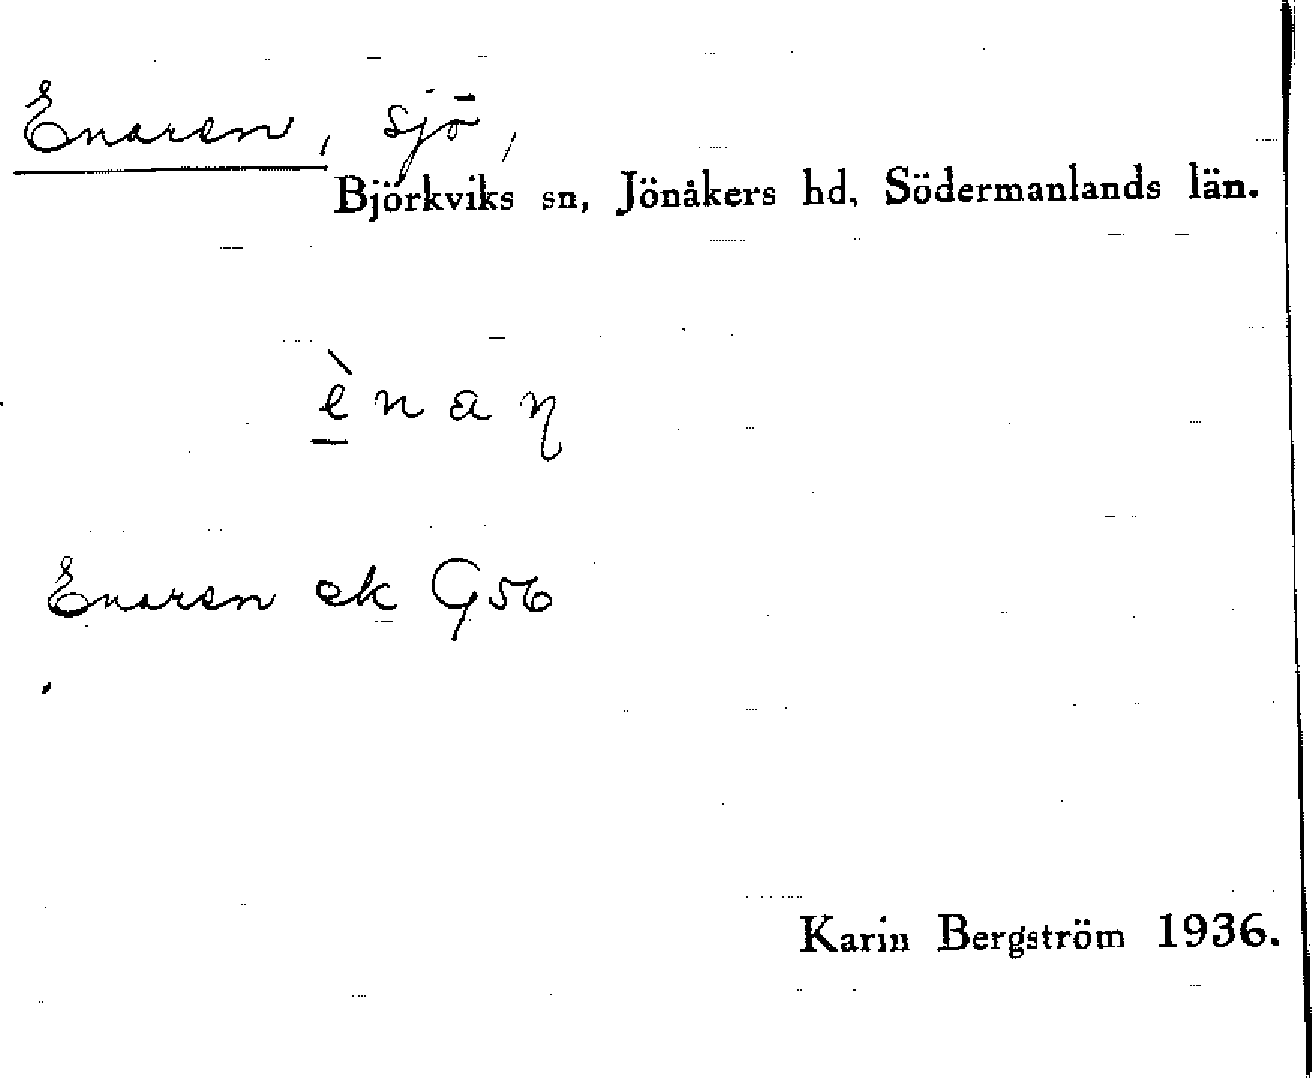 Enaren, sjö,
Björkviks sn, Jönåkers hd, Södermanlands län.
è̲naɳ
Enaren ek G56
Karin Bergström 1936.